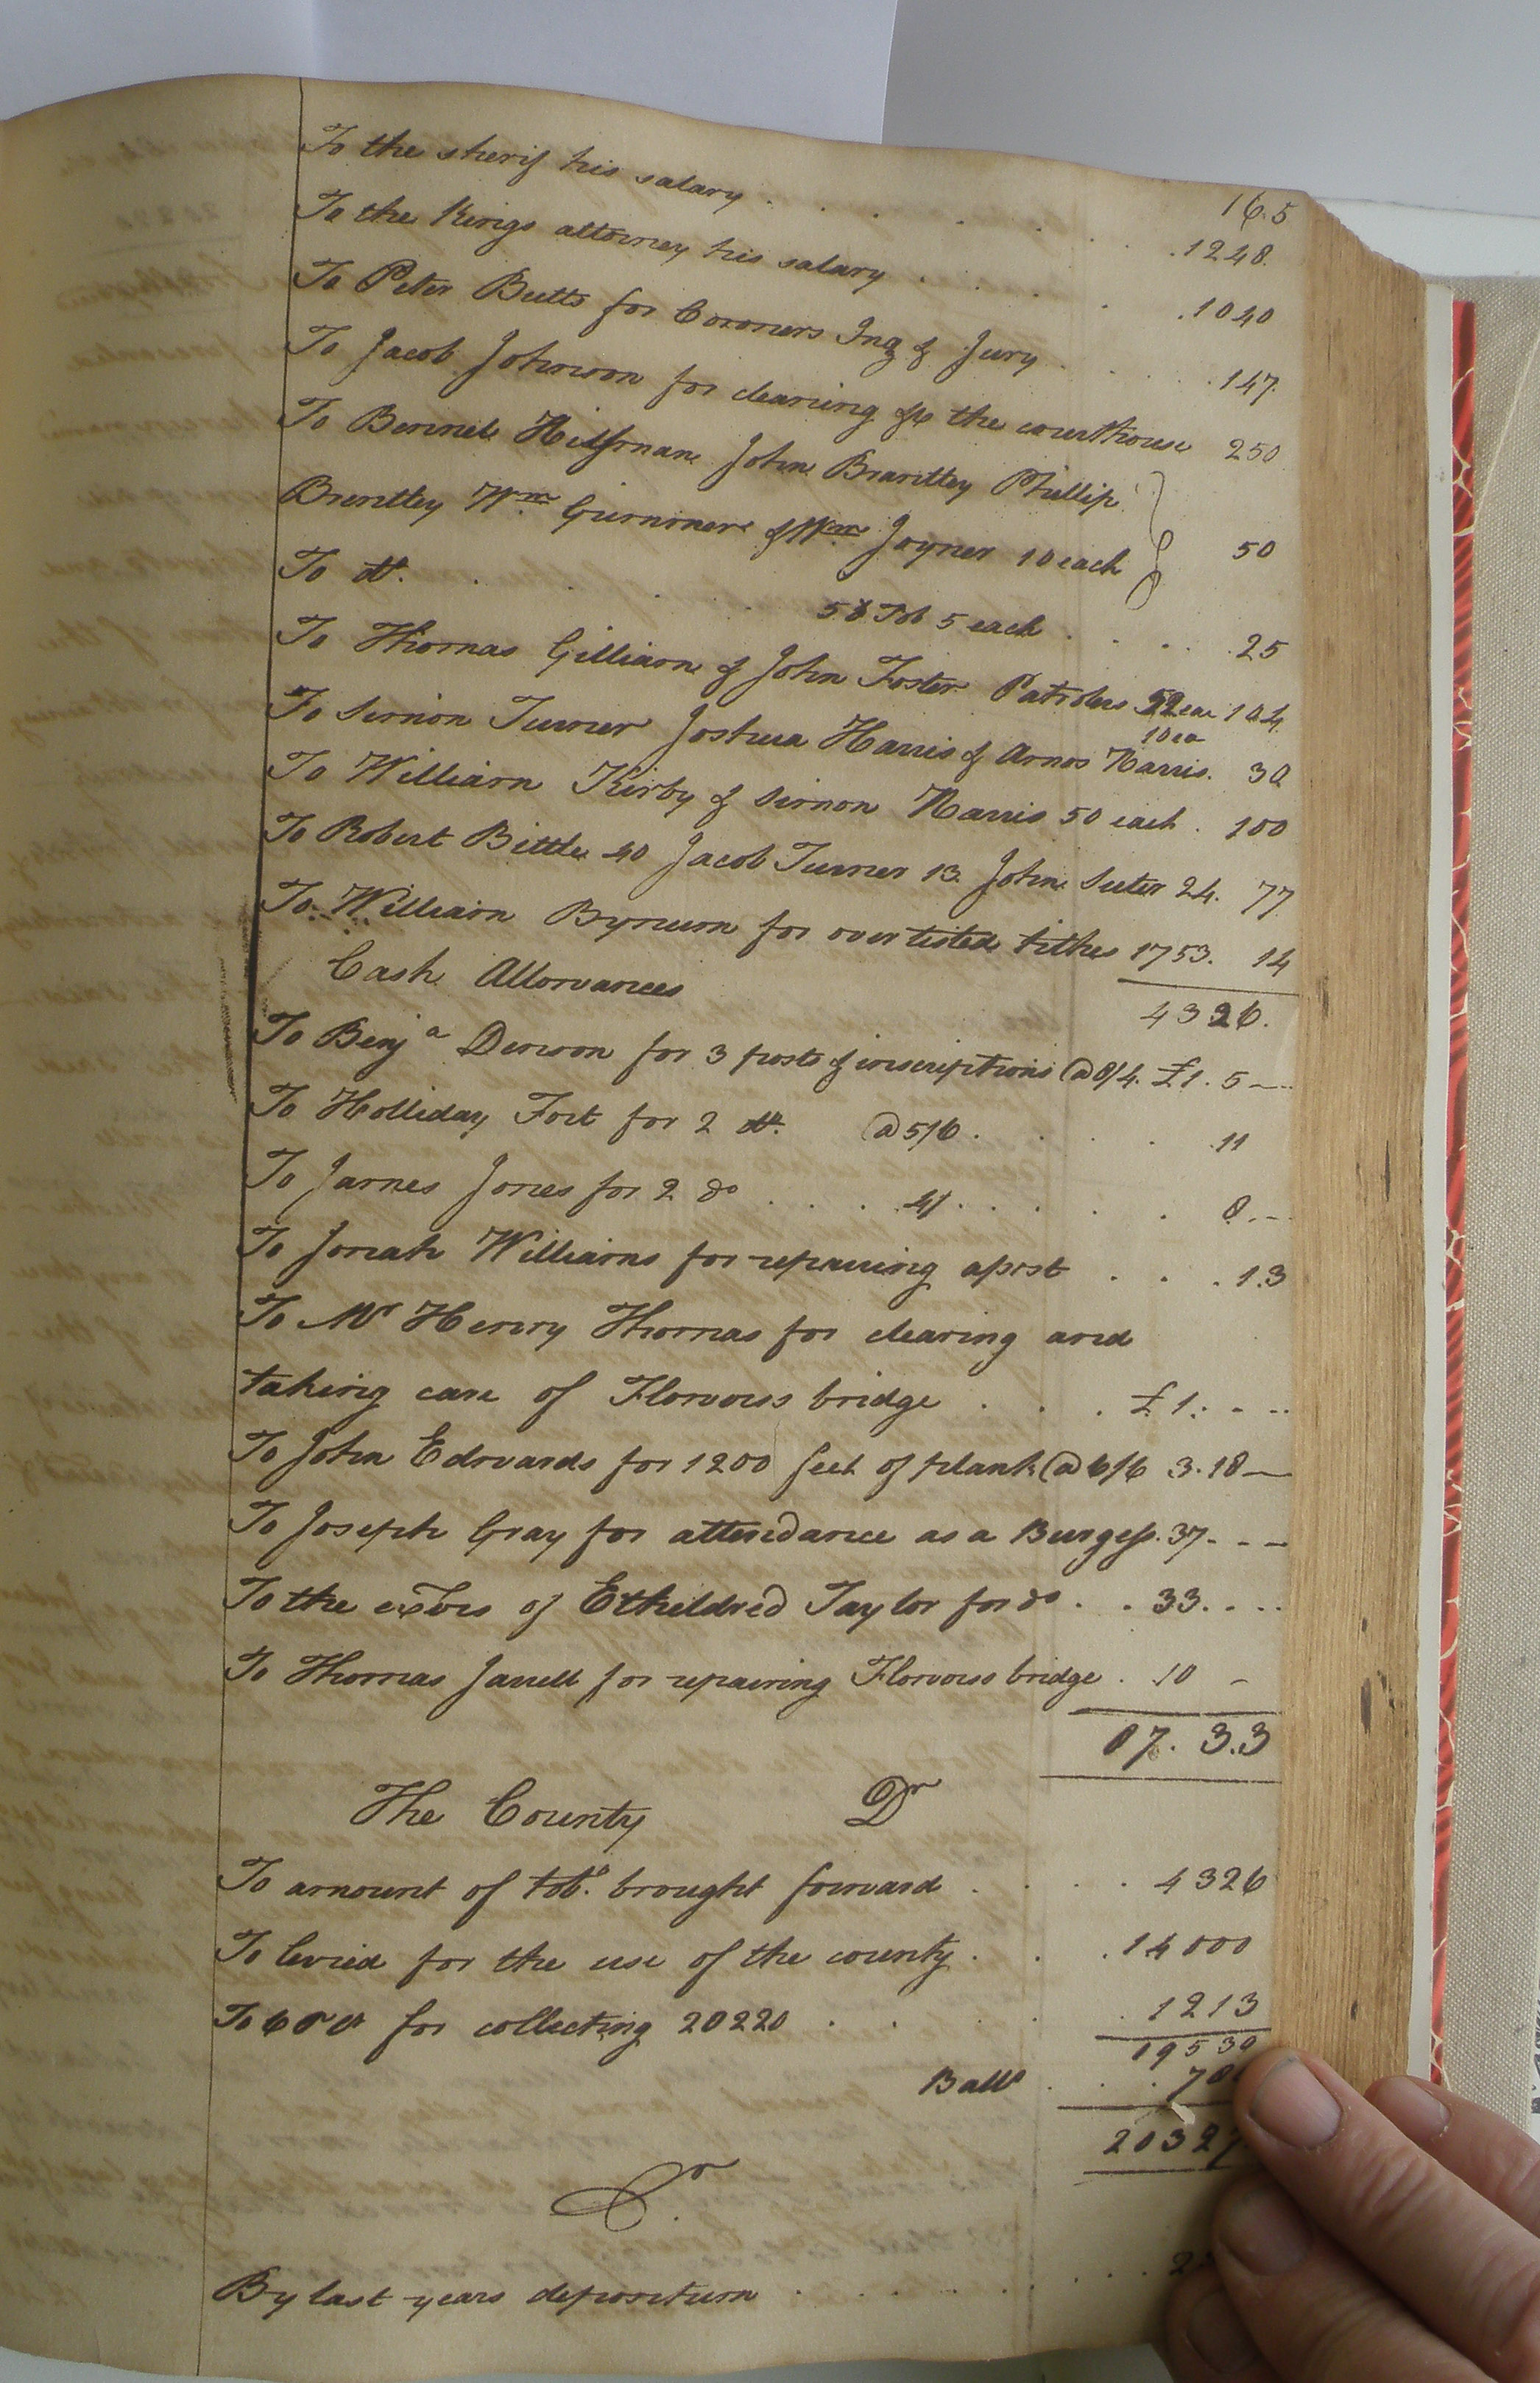 165
To the sherif his salary . . . . . . . 1248.
To the Kings attorney his salary . . . . . 1040
To Peter Butts for Coroners Inq & Jury . . . . 147.
To Jacob Johnson for cleaning &c the courthouse 250
To Bennet Hilsman John Brantley Phillip
Brantley Wm. Gunner & Wm Joyner 10 each } 50
To do. . . . . 5 Tob 5 each . . . . 25
To Thomas Gilliam & John Foster Patrolers 52 ea 104
To Simon Turner Joshua Harris & Amos Harris. 10 ea 30
To William Kirby & Simon Harris 50 each . 100
To Robert Bittle 40 Jacob Turner 13. John Suter 24. 77
To William Bynum for over listed tithes 1753. 14
Cash Allowances 4326.
To Benja Denson for 3 posts & inscriptions @ 8/4. £1. 5 —
To Holliday Fort for 2 do. @ 5/6 . . . . 11
To James Jones for 2 do . . . 4/. . . . . 8. --
To Jonah Williams for repairing a post . . . 1.3
To Mr Henry Thomas for clearing and
taking care of Flowers bridge . . . £ 1. - --
To John Edwards for 1200 feet of plank @ 6/6 3. 18 —
To Joseph Gray for attendance as a Burgess. 37. - - -
To the exors of Etheldred Taylor for do . . 33. . . .
To Thomas Jarrell for repairing Flowers bridge . 10 -
87. 3.3
The County Dr
To amount of tobo. brought forward . . . . 4326
To levied for the use of the county . . . 14000
To for collecting 20220 . . . . 1213
19539
Balle . . .
2032
Cr.
By last years depositum . . . . . . . .